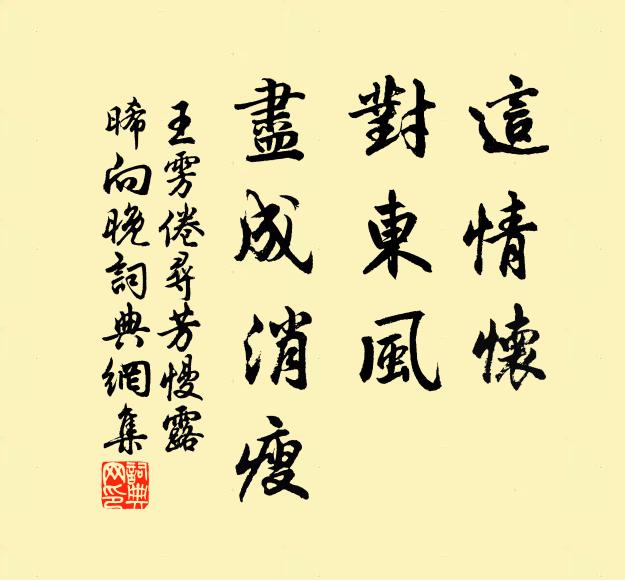 這情懷
對東風
盡成消瘦
王雱倦尋芳慢露
晞向晚詞典網集
詞典網印